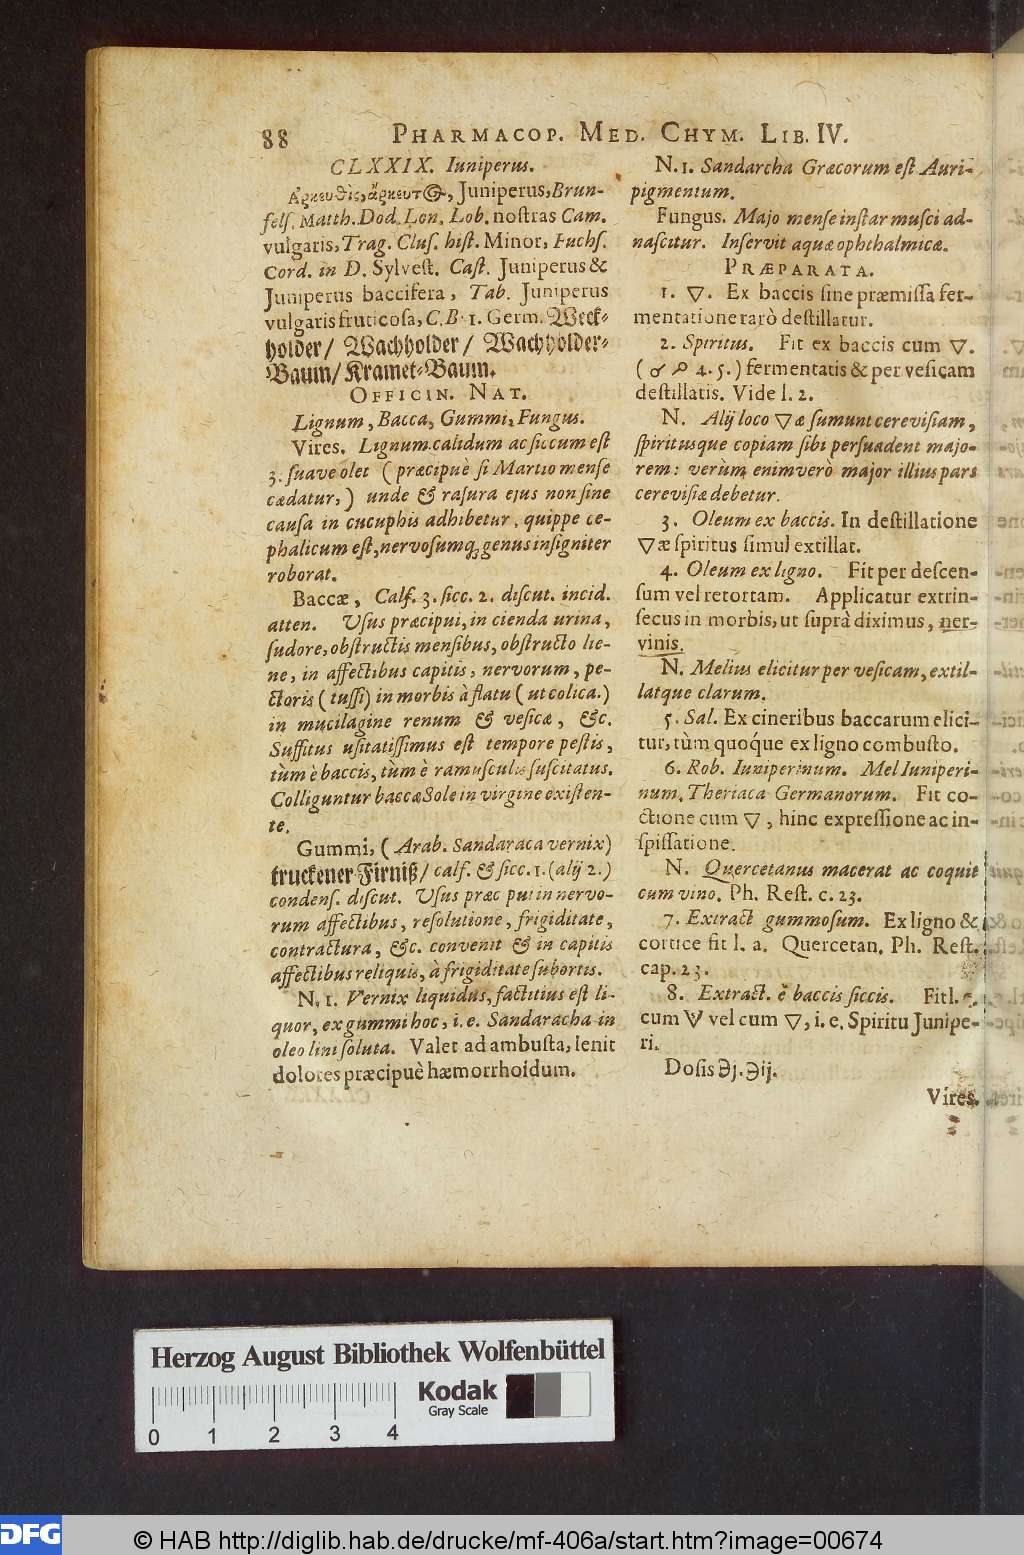 88 PHARMACOP. MED. CHYM. LIB. IV.
CLXXIX. Iuniperus.
Juniperus, Brun-
fels. Matth. Dod. Lon. Lob. nostras Cam.
vulgaris, Trag. Clus. hist. Minor, Fuchs.
Cord. in D. Sylvest. Cast. Juniperus &
Juniperus baccifera, Tab. Juniperus
vulgaris fruticosa, C.B. 1. Germ. Weck-
holder / Wachholder / Wachholder-
Baum / Kramet-Baum.
OFFICIN. NAT.
Lignum, Bacca, Gummi, Fungus.
Vires. Lignum calidum ac siccum est
3. suave olet (præcipuè si Martio mense
cædatur,) unde & rasura ejus non sine
causa in cucuphis adhibetur, quippe ce-
phalicum est, nervosumq; genus insigniter
roborat.
Baccæ, Calf. 3. sicc. 2. discut. incid.
atten. Usus præcipui, in cienda urina,
sudore, obstructis mensibus, obstructo lie-
ne, in affectibus capitis, nervorum, pe-
ctoris (tussi) in morbis à flatu (ut colica.)
in mucilagine renum & vesicæ, &c.
Suffitus usitatissimus est tempore pestis,
tùm è baccis, tùm è ramusculis suscitatus.
Colliguntur baccæ Sole in virgine existen-
te.
Gummi, (Arab. Sandaraca vernix)
truckener Firniß / calf. & sicc. 1. (alij 2.)
condens. discut. Usus præcipui in nervo-
rum affectibus, resolutione, frigiditate,
contractura, &c. convenit & in capitis
affectibus reliquis, à frigiditate subortis.
N. 1. Vernix liquidus, factitius est li-
quor, ex gummi hoc, i.e. Sandaracha in
oleo lini soluta. Valet ad ambusta, lenit
dolores præcipuè hæmorrhoidum.
N. 1. Sandarcha Græcorum est Auri-
pigmentum.
Fungus. Majo mense instar musci ad-
nascitur. Inservit aquæ ophthalmicæ.
PRÆPARATA.
1. 🜄. Ex baccis sine præmissa fer-
mentatione rarò destillatur.
2. Spiritus. Fit ex baccis cum 🜄.
4. 5.) fermentatis & per vesicam
destillatis. Vide l. 2.
N. Alij loco 🜄æ sumunt cerevisiam,
spiritusque copiam sibi persuadent majo-
rem: verùm enimverò major illius pars
cerevisiæ debetur.
3. Oleum ex baccis. In destillatione
🜄æ spiritus simul extillat.
4. Oleum ex ligno. Fit per descen-
sum vel retortam. Applicatur extrin-
secus in morbis, ut suprà diximus, ner-
vinis.
N. Melius elicitur per vesicam, extil-
latque clarum.
5. Sal. Ex cineribus baccarum elici-
tur, tùm quoque ex ligno combusto.
6. Rob. Iuniperinum. Mel Iuniperi-
num. Theriaca Germanorum. Fit co-
ctione cum 🜄, hinc expressione ac in-
spissatione.
N. Quercetanus macerat ac coquit
cum vino. Ph. Rest. c. 23.
7. Extract gummosum. Ex ligno &
cortice fit l. a. Quercetan. Ph. Rest.
cap. 23.
8. Extract. è baccis siccis. Fit l. a.
cum vel cum 🜄, i. e. Spiritu Junipe-
ri.
Dosis ℈j. ℈ij.
Vires.
Herzog August Bibliothek Wolfenbüttel
Kodak
Gray Scale
0 1 2 3 4
DFG © HAB http://diglib.hab.de/drucke/mf-406a/start.htm?image=00674